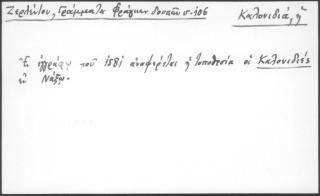 Ζερλέντου, Γράμματα Φράγκων δουκῶν σ. 106
Καλονιδιά, ἡ
Ἐν ἐγγράφῳ τοῦ 1581 ἀναφέρεται ἡ τοποθεσία οἱ Καλονιδιές
ἐν Νάξῳ.